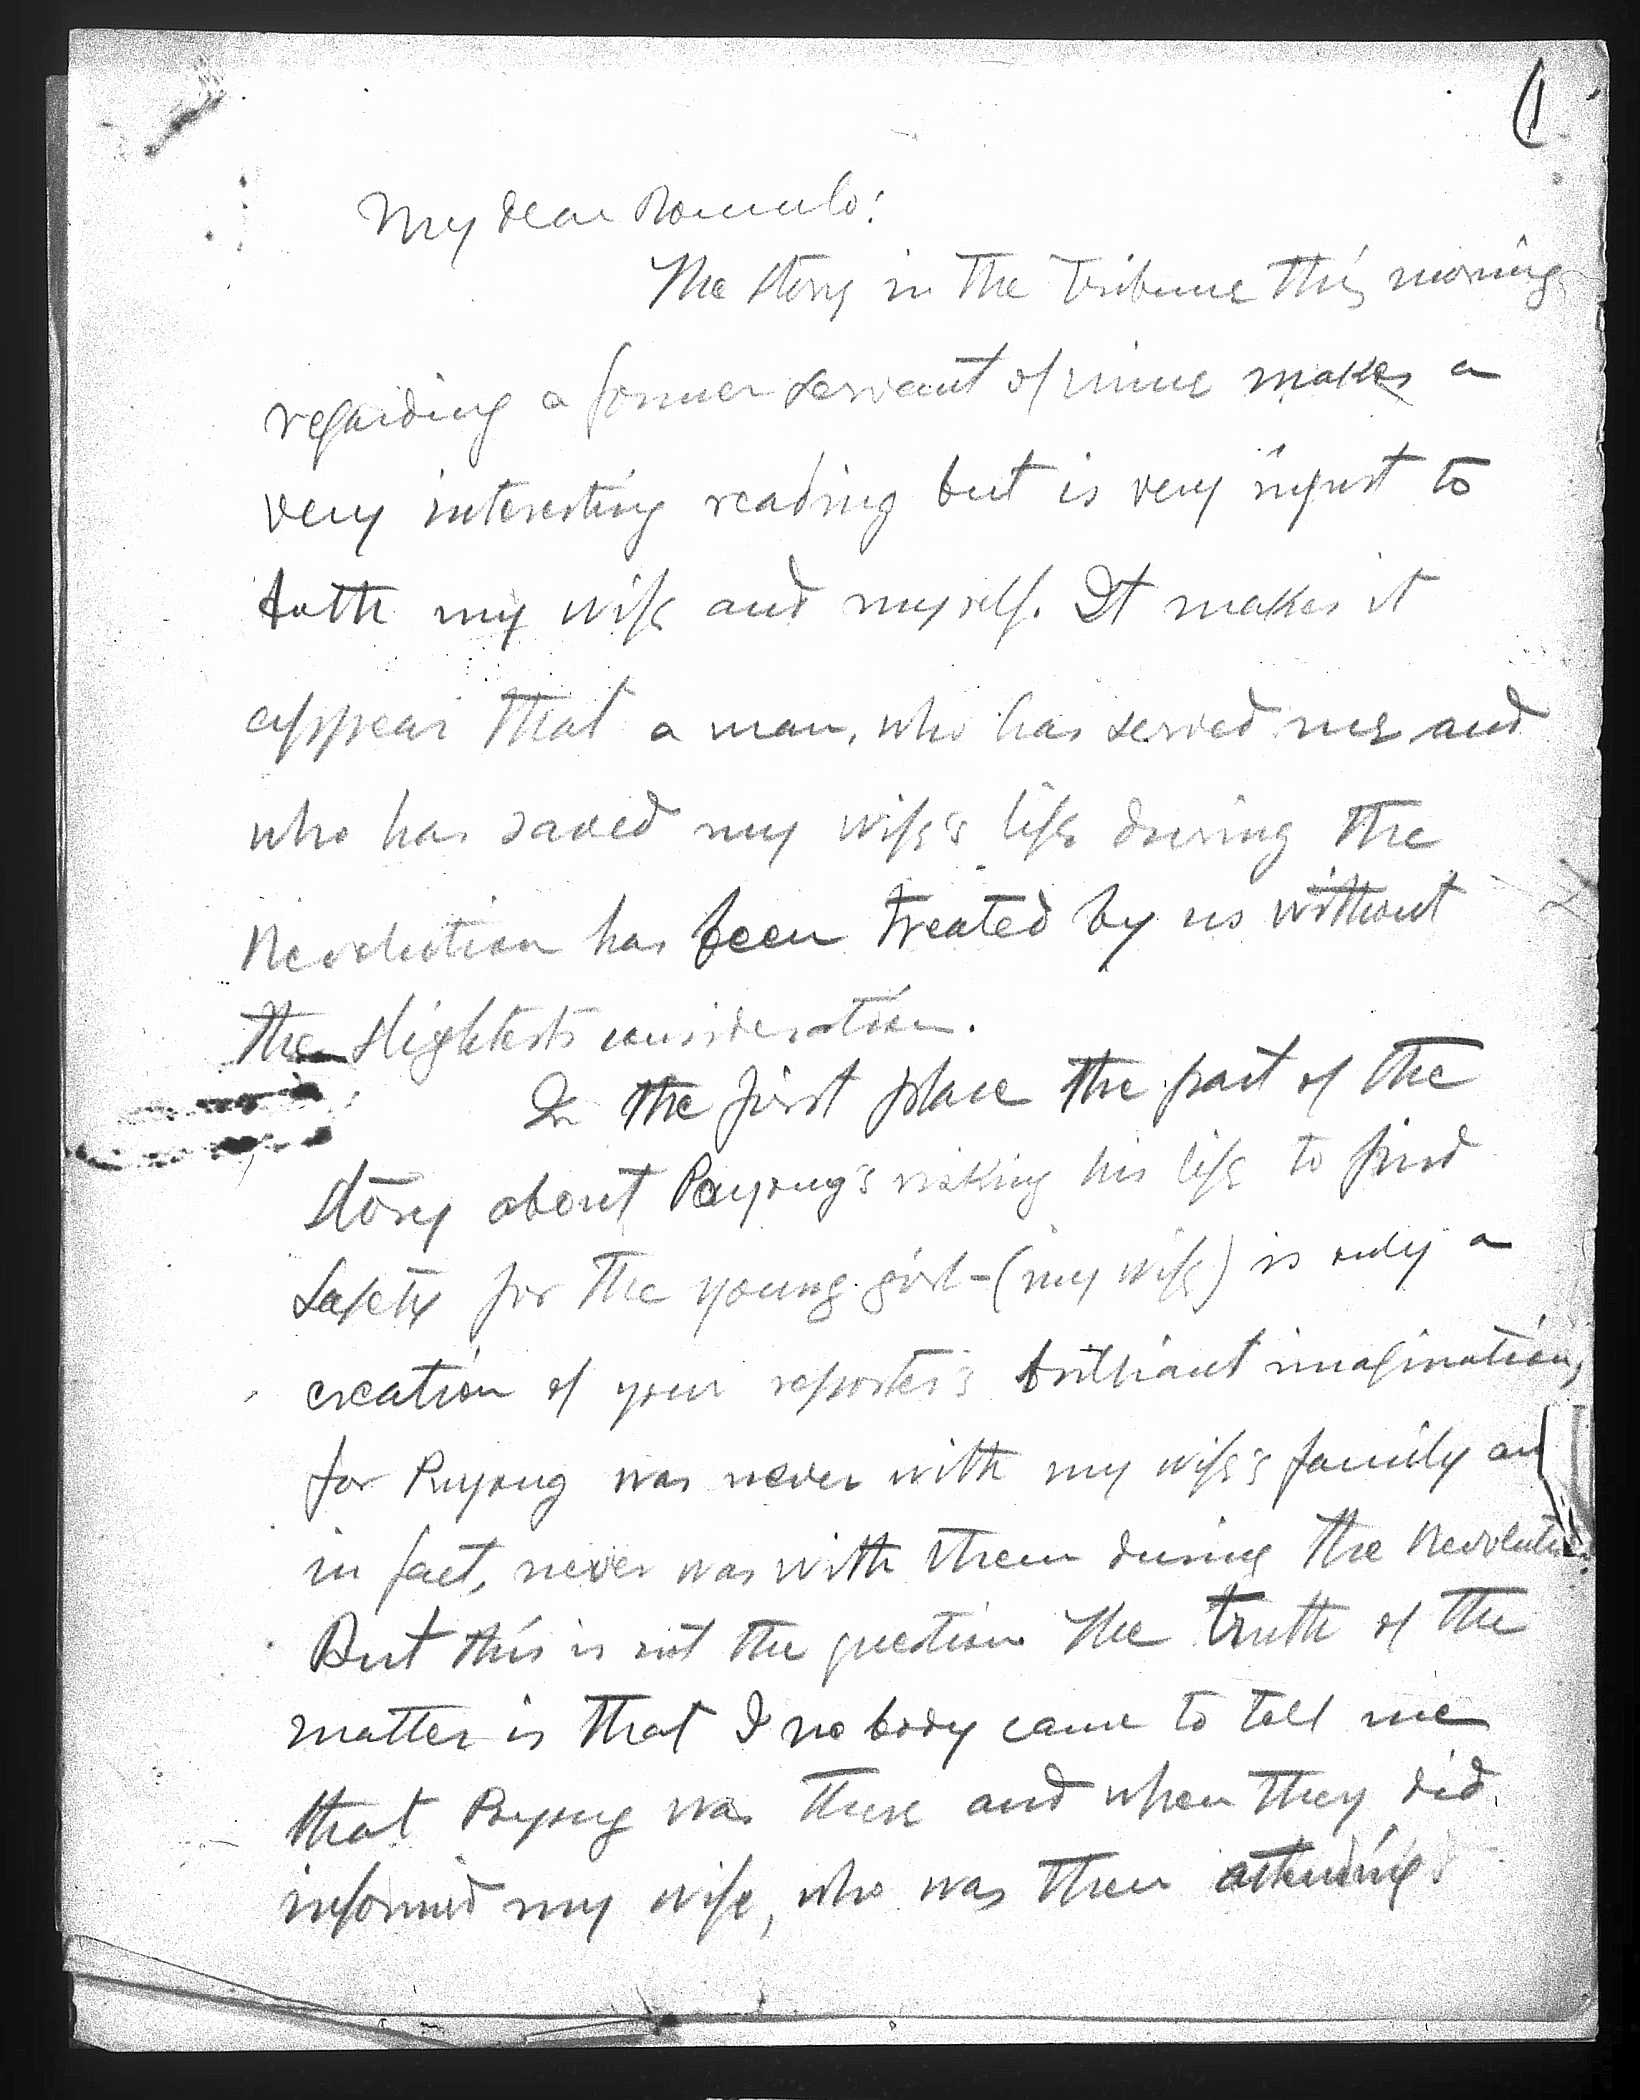 (1
My dear Romulo:
The story in the Tribune this morning
regarding a former servant of mine makes a
very interesting reading but is very injust to
both my wife and myself. It makes it
appear that a man, who has served me and
who has saved my wife's life during the
Revolution has been treated by us without
the slightests consideration.
In the first place the part of the
story about Puyong's risking his life to find
safety for the young girl - (my wife) is only a
creation of your reporter's brilliant imagination,
for Puyong was never with my wife's family and
in fact, never was with them during the Revolution
But this is not the question. The truth of the
matter is that I nobody came to tell me
that Puyong was there and when they did
informed my wife, who was then attending